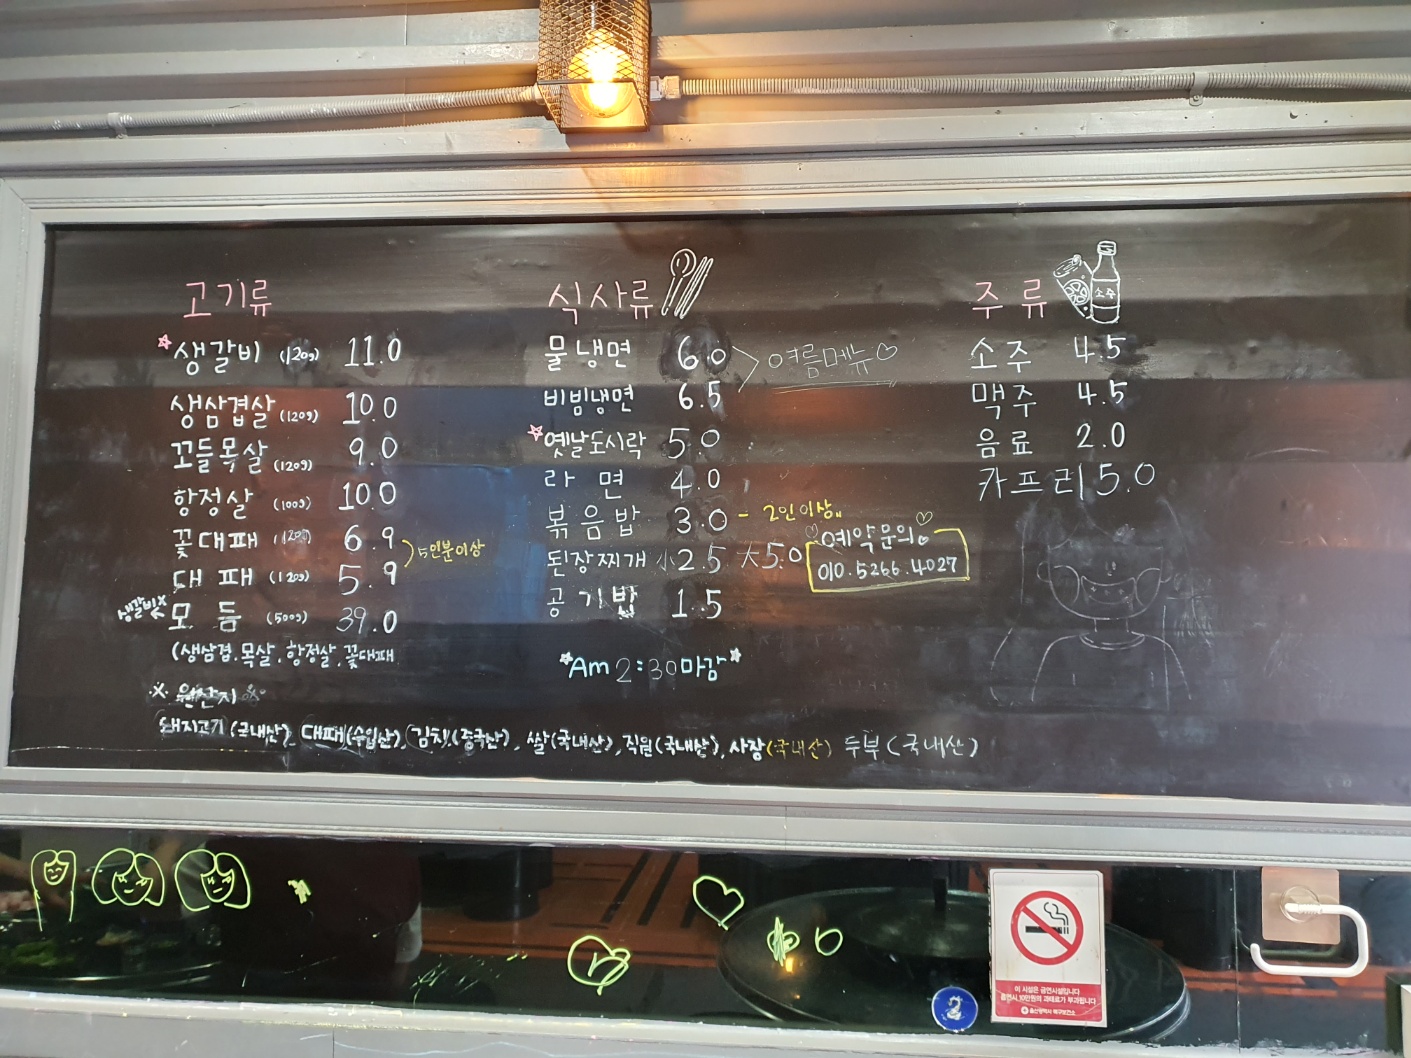 고기류
☆생갈비 (120g) 11.0
생삼겹살 (120g) 10.0
꼬들목살 (120g) 9.0
항정살 (100g) 10.0
꽃대패 (120g) 6.9
대패 (120g) 5.9
5인분이상
생갈비X 모듬 (500g) 39.0
(생삼겹.목살.항정살.꽃대패
※ 원산지 ※
돼지고기(국내산), 대패(수입산), 김치(중국산), 쌀(국내산), 직원(국내산), 사장(국내산) 두부(국내산)
식사류
물냉면 6.0
비빔냉면 6.5
여름메뉴♡
☆옛날도시락 5.0
라면 4.0
볶음밥 3.0 - 2인이상
된장찌개 小2.5 大5.0
공기밥 1.5
*Am 2:30마감*
♡예약문의♡
010.5266.4027
주류
소주
소주 4.5
맥주 4.5
음료 2.0
카프리 5.0
이 시설은 금연시설입니다
금연시 10만원의 과태료가 부과됩니다
울산광역시 북구보건소
2